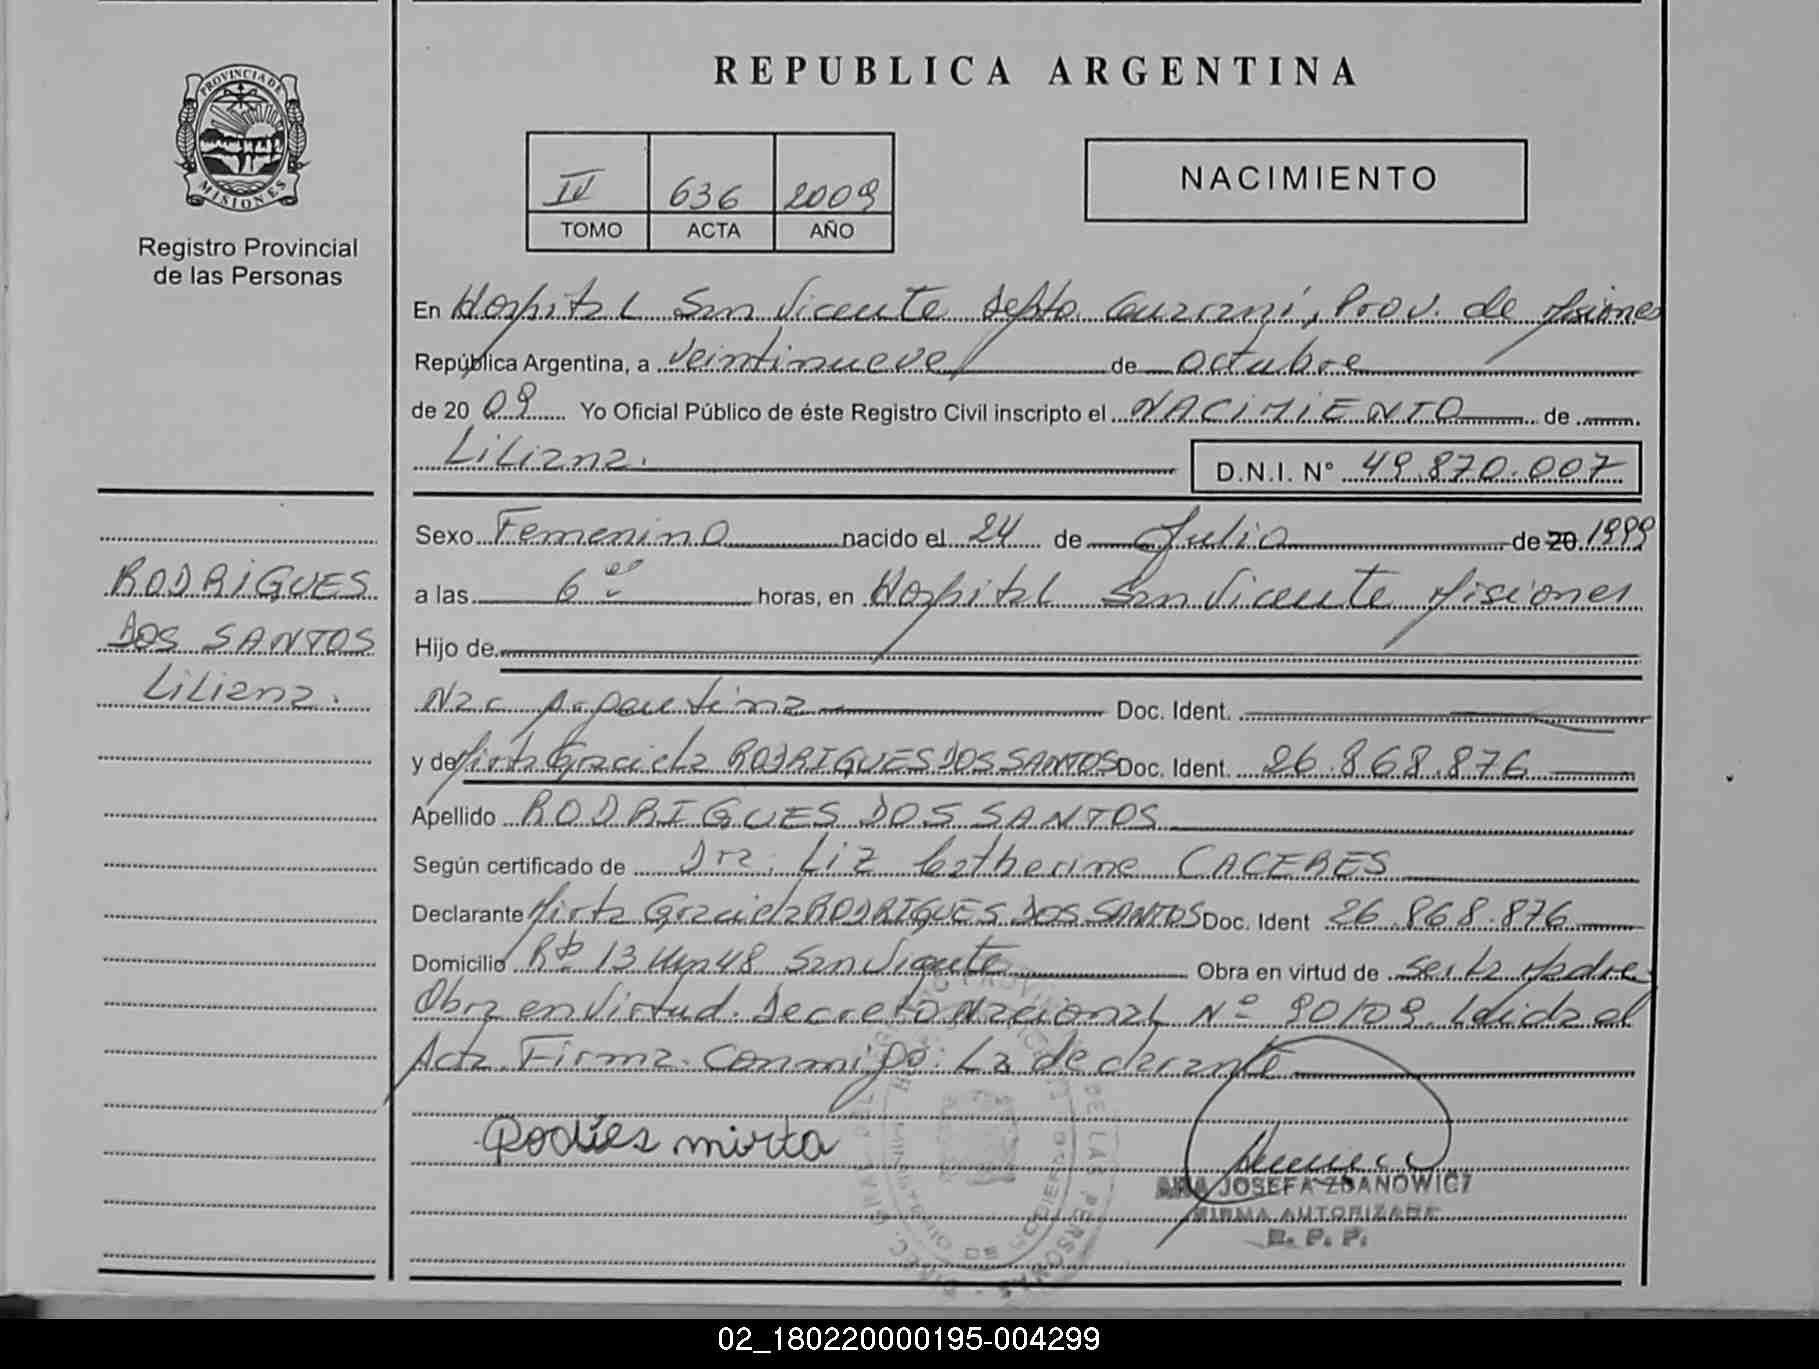 PROVINCIA DE
MISIONES
Registro Provincial
de las Personas
RODRIGUES
DOS SANTOS
Liliana.
REPUBLICA ARGENTINA
IV 636 2009
TOMO ACTA AÑO
NACIMIENTO
En Hospital San Vicente Depto. Guaraní, Prov. de Misiones
República Argentina, a veintinueve de octubre
de 20 09 Yo Oficial Público de éste Registro Civil inscripto el NACIMIENTO de
Liliana. D.N.I. N° 49.870.007
Sexo Femenino nacido el 24 de Julio de 20 1999
a las 6 horas, en Hospital San Vicente Misiones
Hijo de
Nac Argentina Doc. Ident.
y de Mirta Graciela RODRIGUES DOS SANTOS Doc. Ident. 26.868.876
Apellido RODRIGUES DOS SANTOS
Según certificado de Dra. Liz Catherine CACERES
Declarante Mirta Graciela RODRIGUES DOS SANTOS Doc. Ident 26.868.876
Domicilio 13 Km 48 San Vicente Obra en virtud de ser la Madre
Obra en Virtud. Decreto Nacional N° 90/09. Leida el
Acta. Firma. Conmigo: La declarante
mirta
ANA JOSEFA ZDANOWICZ
FIRMA AUTORIZADA
R. P. P.
02_180220000195-004299